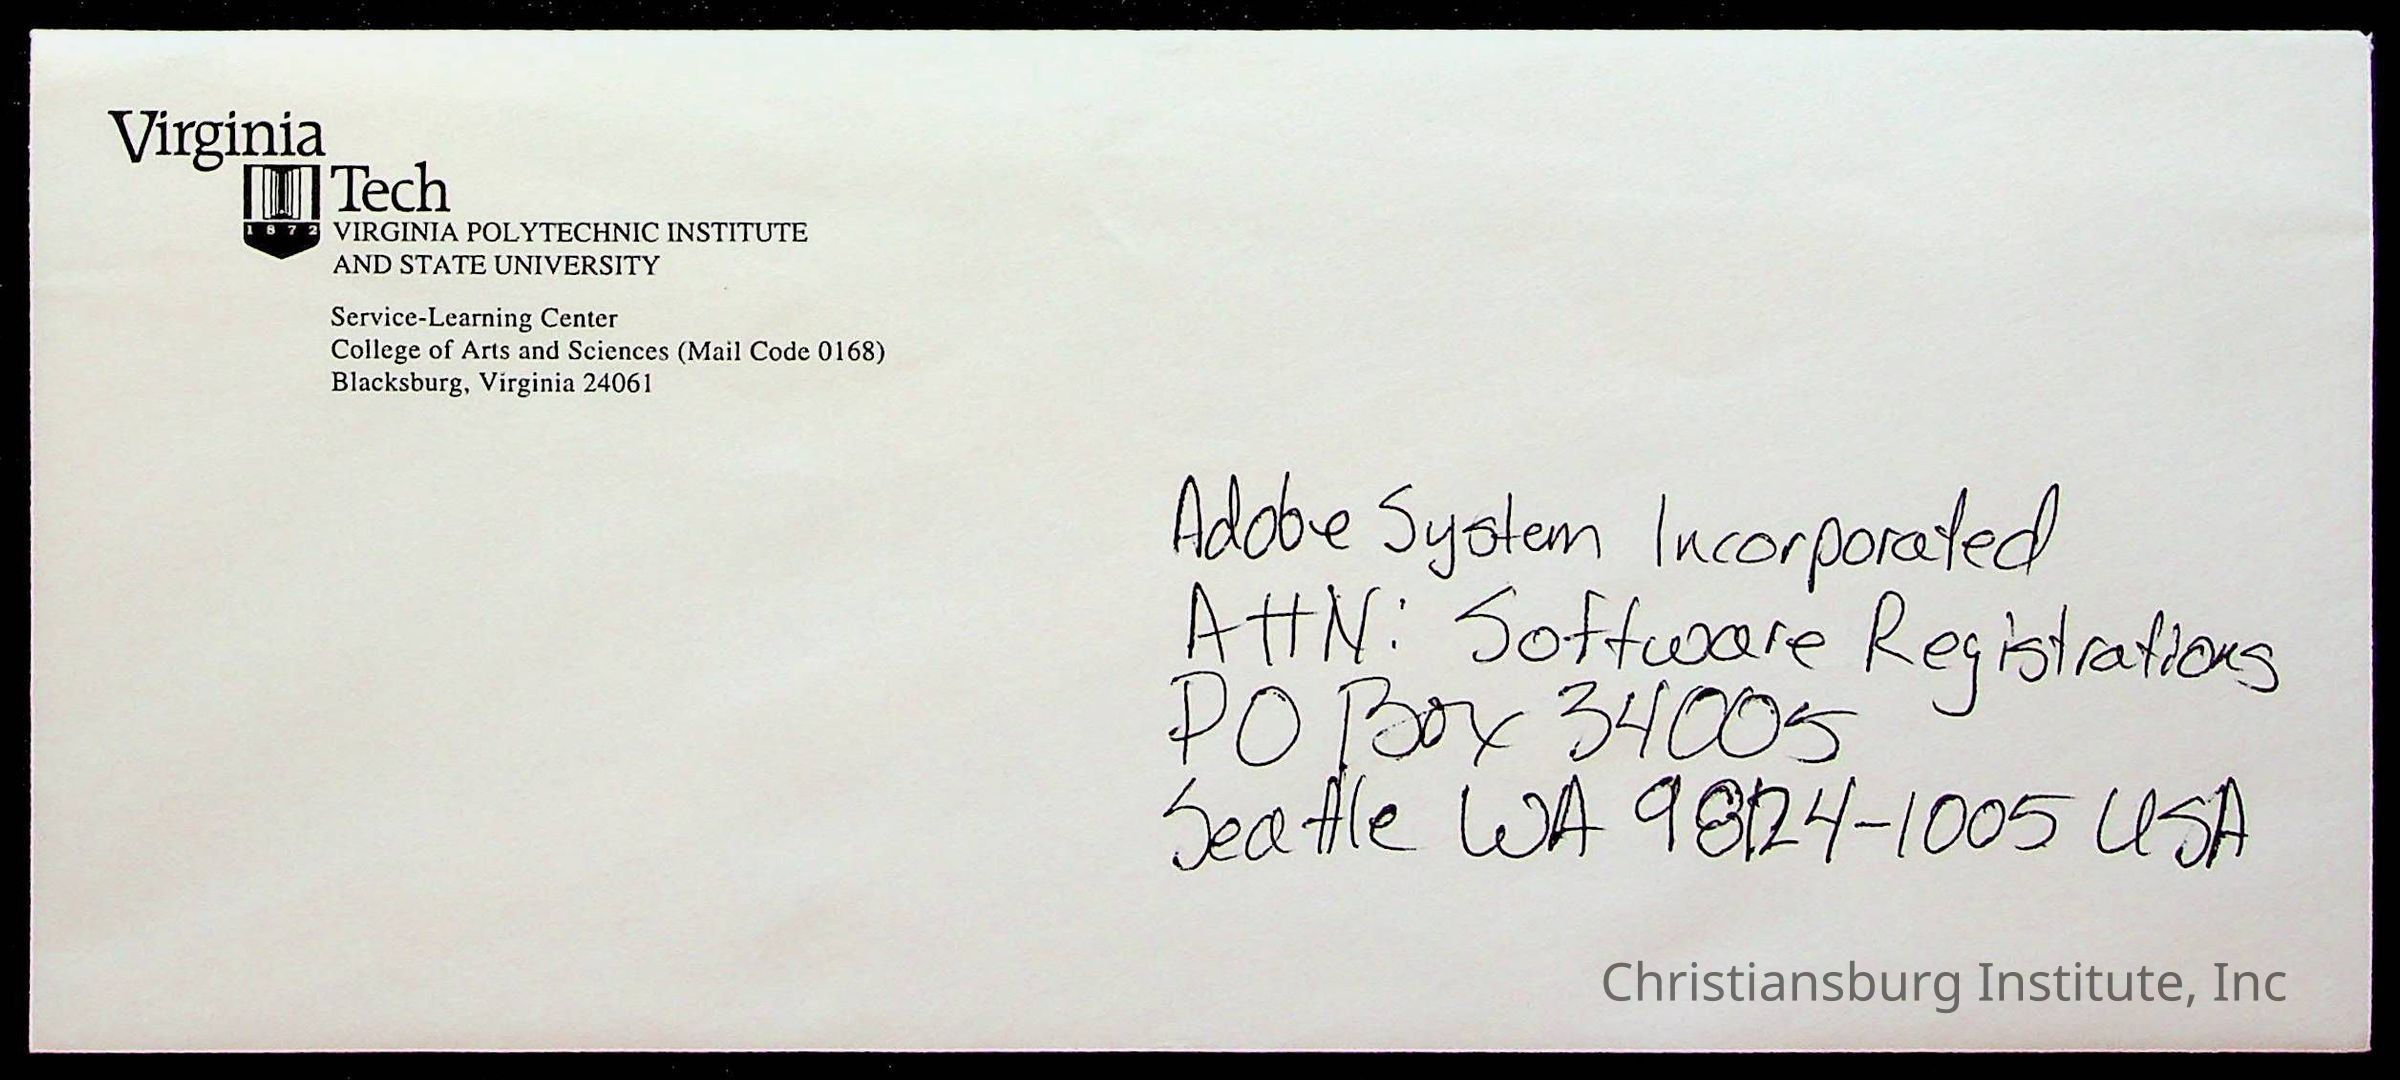 Virginia
Tech
1872
VIRGINIA POLYTECHNIC INSTITUTE
AND STATE UNIVERSITY
Service-Learning Center
College of Arts and Sciences (Mail Code 0168)
Blacksburg, Virginia 24061
Adobe System Incorporated
AttN: Software Registrations
PO Box 34005
Seattle WA 98124-1005 USA
Christiansburg Institute, Inc